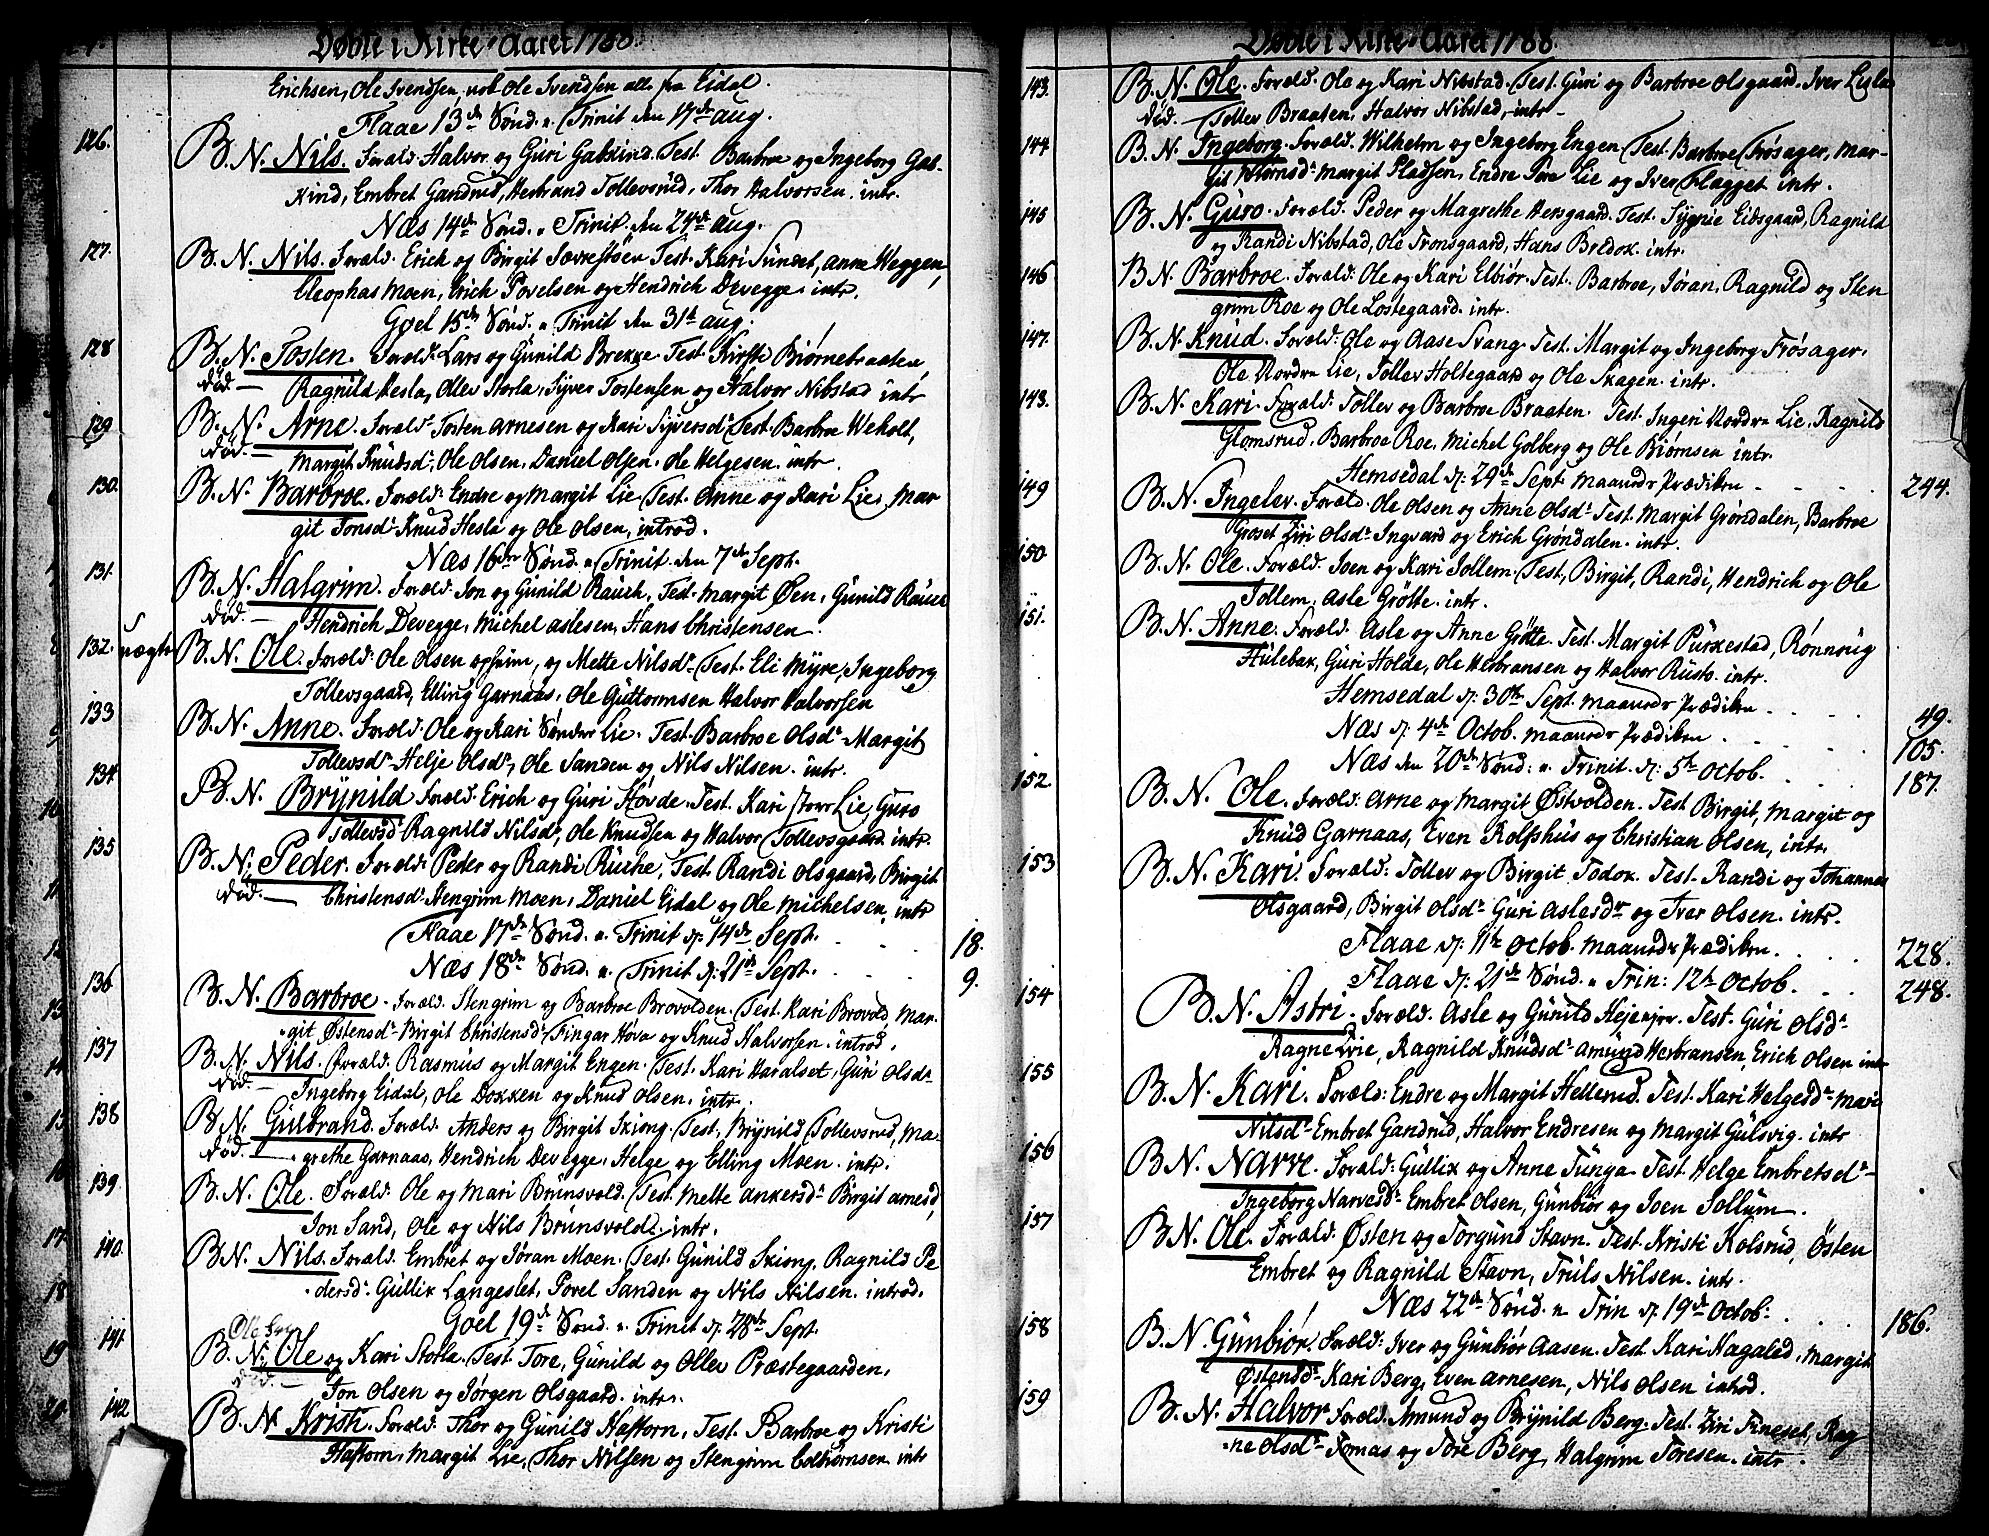 Døbte i Kirke-Aaret 1788.
Erichsen, Ole Svendsen nob Ole Svendsen alle fra Eidal.
Flaae 13de Sønd. a. Trinit den 17de aug.
126. B. N. Nils. Foræld. Halvor og Guri Gabkind. Test. Barbroe og Ingeborg Gab-
kind, Embret Gandrud, Herbrand Tollevsrud, Thor Halvorsen. intr.
Næs 14de Sønd. a. Trinit. den 24de aug.
127. B. N. Nils. Foræld. Erich og Birgit Sævrestøen Test. Kari Sundet, anne Weggen,
Cleophas Moen, Erich Povelsen og Hendrich Devegge. intr.
Goel 15de Sønd. a. Trinit den 31te aug.
128 B. N. Tosten. Foræld. Lars og Gunild Brekke Test. Kirsti Biørnebraaten,
død — Ragnild Hesla, Ollev Storla, Syver Tostensen og Halvor Nibstad intr
129 B. N. Arne. Foræld. Tosten arnesen og Kari Syversd. Test. Barbroe Weholt,
død. — Margit Knudsd. Ole Olsen, Daniel Olsen. Ole Helgesen. intr.
130. B. N. Barbroe. Foræld. Endre og Margit Lie. Test. Anne og Kari Lie, Mar
git Tonsd. Knud Hesla og Ole Olsen, introd.
Næs 16de Sønd. a. Trinit. den 7de Sept.
131. B. N. Halgrim. Foræld. Jon og Gunild Rauch, Test. Margit Øen, Gunild Rauch
død. — Hendrich Devegge, Michel aslesen, Hans Christensen.
132. uægte B. N. Ole. Foræld. Ole Olsen opheim, og Mette Nilsd. Test. Eli Myre, Ingeborg
Tollevsgaard, Elling Garnaas, Ole Guttormsen Halvor Halvorsen
133 B. N. Anne. Foræld. Ole og Kari Søndre Lie. Test. Barbroe Olsd. Margit
Tollevsd. Helje Olsd., Ole Sanden og Nils Nilsen. intr.
134. B. N. Brynild Foræld. Erich og Guri Hovde. Test. Kari Lie, Guro
Tollevsd. Ragnild Nilsd., Ole Knudsen og Halvor Tollevsgaard. intr.
135 B. N. Peder. Foræld. Peder og Randi Ruche, Test. Randi Olsgaard, Birgit
død. — Christensd. Hengrim Moen, Daniel Eidal og Ole Michelsen. intr
Flaae 17de Sønd. a. Trinit d. 14de Sept. . . . 18.
Næs 18de Sønd. a. Trinit d. 21de Sept. . . . 9.
136 B. N. Barbroe. Foræld. Stengrim og Barbroe Brovolden. Test. Kari Brovold, Mar-
git Østensd. Birgit Christensd. Fingar Hova og Knud Halvorsen. introd.
137 B. N. Nils. Foræld. Rasmus og Margit Engen. Test. Kari Haralset, Guri Olsd.
død — Ingeborg Eidal, Ole Dokken og Knud Olsen. intr.
138 B. N. Gulbrand. Foræld. Anders og Birgit Skiong. Test. Brynild Tollevsrud, Ma-
død. — grethe Garnaas, Hendrich Devegge, Helge og Elling Moen. intr.
139. B. N. Ole. Foræld. Ole og Mari Brunsvold. Test. Mette ankersd. Birgit arnesd,
Jon Sand, Ole og Nils Brunsvold. intr.
140. B. N. Nils. Foræld. Embret og Jøran Moen. Test. Gunild Skiong, Ragnild Pe
dersd. Gullix Langeslet, Povel Sanden og Nils Nilsen. introd.
Goel 19de Sønd. a. Trinit d. 28de Sept.
141. B. N. Ole og Kari Storla. Test. Tore, Gunild og Ollev Præstegaarden,
død. — Jon Olsen og Jørgen Olsgaard. intr.
142 B. N. Kristi. Foræld. Thor og Gunild Haftorn, Test. Barbroe og Kristi
Haftorn, Margit Lie, Thor Nilsen og Stengrim Colbiørnsen. intr
Døbte i Kirke-Aaret 1788.
143. B. N. Ole. Foræld. Ole og Kari Nibstad. Test. Guri og Barbroe Olsgaard. Iver Lesla
død. — Tollev Braaten, Halvor Nibstad, intr.
144 B. N. Ingeborg. Foræld. Wilhelm og Ingeborg Engen Test. Barbroe Frøsager, Mar-
git Margit Pladsen, Endre Lie og Iver Plagget intr.
145 B. N. Guro. Foræld. Peder og Magrethe Hersgaard. Test. Sygnie Eidsgaard, Ragnild
og Randi Nibstad, Ole Tronsgaard, Hans Bredok. intr.
146 B N. Barbroe. Foræld. Ole og Kari Elbiør. Test. Barbroe, Jøran, Ragnild og Sten
grim Roe og Ole Lostegaard. intr.
147. B. N. Knud. Foræld. Ole og Aase Svang. Test. Margit og Ingeborg Frøsager.
Ole Nordre Lie, Tollev Holtegaard og Ole Skagen. intr.
148. B. N. Kari. Foræld. Tollev og Barbroe Braaten. Test. Ingeri Nordre Lie, Ragnild
Glomsrud, Barbroe Roe, Michel Golberg og Ole Biørnsen intr.
Hemsedal d. 29de Sept. Maaneds Prædiken . . . . 244.
149 B. N. Ingelev. Foræld. Ole Olsen og Anne Olsd. Test. Margit Grøndalen, Barbroe
Groset Livi Olsd. Ingvard og Erich Grøndalen. intr.
150. B. N. Ole. Foræld. Joen og Kari Tollem. Test, Birgit, Randi, Hendrich og Ole
Tollem, Asle Grøtte. intr.
151. B. N. Anne. Foræld. Asle og Anne Grøtte. Test. Margit Purkestad, Rønnøug
Hulebak, Guri Holde, Ole Herbransen og Halvor Rusto. intr.
Hemsedal d. 30te Sept. Maaneds Prædiken . . . . 49.
Næs d. 4de Octob. Maaneds Prædiken . . . . 105.
Næs den 20de Sønd. a. Trinit. d. 5te Octob. . . . 187.
152. B. N. Ole. Foræld. Arne og Margit Østvolden. Test Birgit, Margit og
Knud Garnaas, Even Rolfshus og Christian Olsen, intr.
153 B. N. Kari. Foræld. Tollev og Birgit Todok. Test. Randi og Johannes
Olsgaard, Birgit Olsd. Guri Aslesdr og Iver Olsen. intr.
Flaae d. 11te Octob. Maaneds Prædiken. . . . 228.
Flaae d. 21de Sønd. a Trin: 12te Octob. . . . 248.
154 B. N. Astri. Foræld. Asle og Gunild Hejejorr. Test. Guri Olsd.
Ragne Lie, Ragnild Knudsd. Amund Herbransen, Erich Olsen intr
155 B. N. Kari. Foræld: Endre og Margit Hellerud. Test. Kari Helgesd. Mari
Nilsd. Embret Gandrud, Halvor Endresen og Margit Gulsvig. intr
156 B. N. Narve. Foræld: Gullix og Anne Tunga. Test. Helge Embretsd.
Ingeborg Narvesd. Embret Olsen, Gunbiør og Joen Sollum.
157 B. N. Ole. Foræld. Østen og Torgund Stavn. Test. Kristi Kolsrud, Østen
Embret og Ragnild Stavn, Truls Nilsen. intr.
Næs 22de Sønd. a. Trin d. 19de Octob: . . . 186.
158 B. N. Gunbiør. Foræld: Iver og Gunbiør Aasen. Test. Kari Hagaled, Margit
Østensd. Kari Berg, Even arnesen, Nils Olsen introd.
159 B. N. Halvor Foræld. Amund og Brynild Berg. Test. Livi Fineset, Rag
ne Olsd. Tomas og Tore Berg, Halgrim Toresen. intr.